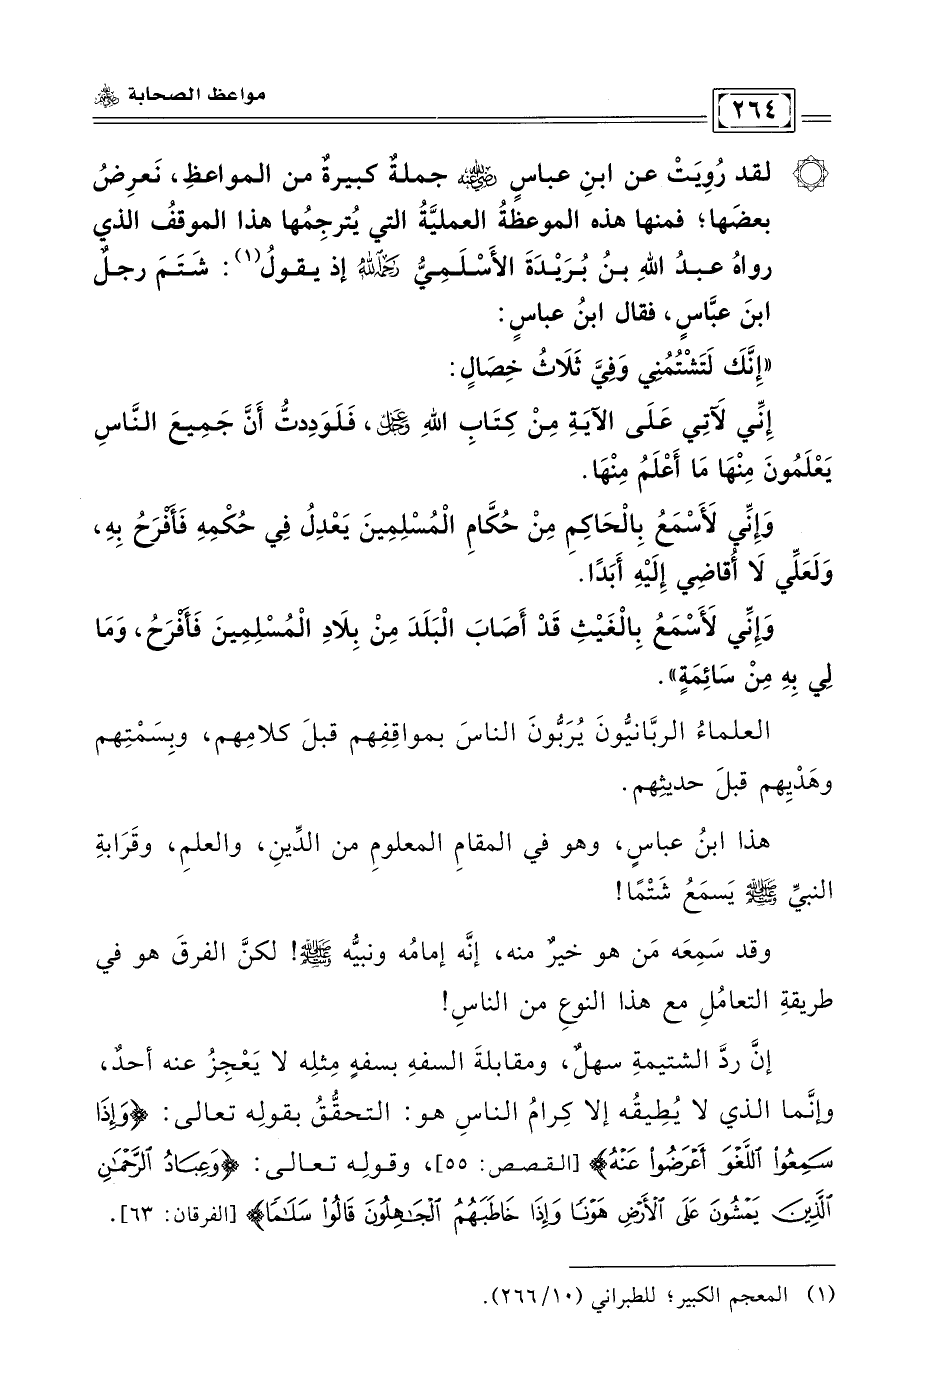 مواعظ الصحابة ﵃
٢٦٤
لقد رُوِيَتْ عن ابنِ عباسٍ ﵁ جملةٌ كبيرةٌ من المواعظِ، نَعرِضُ
بعضَها؛ فمنها هذه الموعظةُ العمليَّةُ التي يُترجِمُها هذا الموقفُ الذي
رواهُ عبدُ اللهِ بنُ بُرَيْدَةَ الأَسْلَمِيُّ ﵀ إذ يقولُ(١): شَتَمَ رجلٌ
ابنَ عبَّاسٍ، فقال ابنُ عباسٍ:
«إِنَّكَ لَتَشْتُمُنِي وَفِيَّ ثَلَاثُ خِصَالٍ:
إِنِّي لَآتِي عَلَى الآيَةِ مِنْ كِتَابِ اللهِ ﷿، فَلَوَدِدتُّ أَنَّ جَمِيعَ النَّاسِ
يَعْلَمُونَ مِنْهَا مَا أَعْلَمُ مِنْهَا.
وَإِنِّي لَأَسْمَعُ بِالْحَاكِمِ مِنْ حُكَّامِ الْمُسْلِمِينَ يَعْدِلُ فِي حُكْمِهِ فَأَفْرَحُ بِهِ،
وَلَعَلِّي لَا أُقَاضِي إِلَيْهِ أَبَدًا.
وَإِنِّي لَأَسْمَعُ بِالْغَيْثِ قَدْ أَصَابَ الْبَلَدَ مِنْ بِلَادِ الْمُسْلِمِينَ فَأَفْرَحُ، وَمَا
لِي بِهِ مِنْ سَائِمَةٍ».
العلماءُ الربَّانيُّونَ يُرَبُّونَ الناسَ بمواقِفِهم قبلَ كلامِهم، وبِسَمْتِهم
وهَدْيِهم قبلَ حديثِهم.
هذا ابنُ عباسٍ، وهو في المقامِ المعلومِ من الدِّينِ، والعلمِ، وقَرَابةِ
النبيِّ ﷺ يَسمَعُ شَتْمًا!
وقد سَمِعَه مَن هو خيرٌ منه، إنَّه إمامُه ونبيُّه ﷺ! لكنَّ الفرقَ هو في
طريقةِ التعامُلِ مع هذا النوعِ من الناسِ!
إنَّ ردَّ الشتيمةِ سهلٌ، ومقابلةَ السفهِ بسفهٍ مِثلِه لا يَعْجِزُ عنه أحدٌ،
وإنَّما الذي لا يُطِيقُه إلا كِرامُ الناسِ هو: التحقُّقُ بقولِه تعالى: ﴿وَإِذَا
سَمِعُوا۟ ٱللَّغْوَ أَعْرَضُوا۟ عَنْهُ﴾ [القصص: ٥٥]، وقولِه تعالى: ﴿وَعِبَادُ ٱلرَّحْمَٰنِ
ٱلَّذِينَ يَمْشُونَ عَلَى ٱلْأَرْضِ هَوْنًا وَإِذَا خَاطَبَهُمُ ٱلْجَٰهِلُونَ قَالُوا۟ سَلَٰمًا﴾ [الفرقان: ٦٣].
(١) المعجم الكبير؛ للطبراني (١٠/ ٢٦٦).